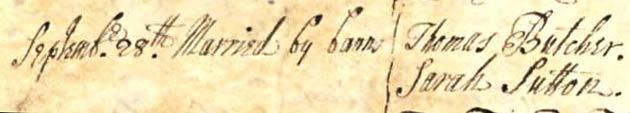 Septemb.r 28.th Married by bann Thomas Butcher.
Sarah Sutton.